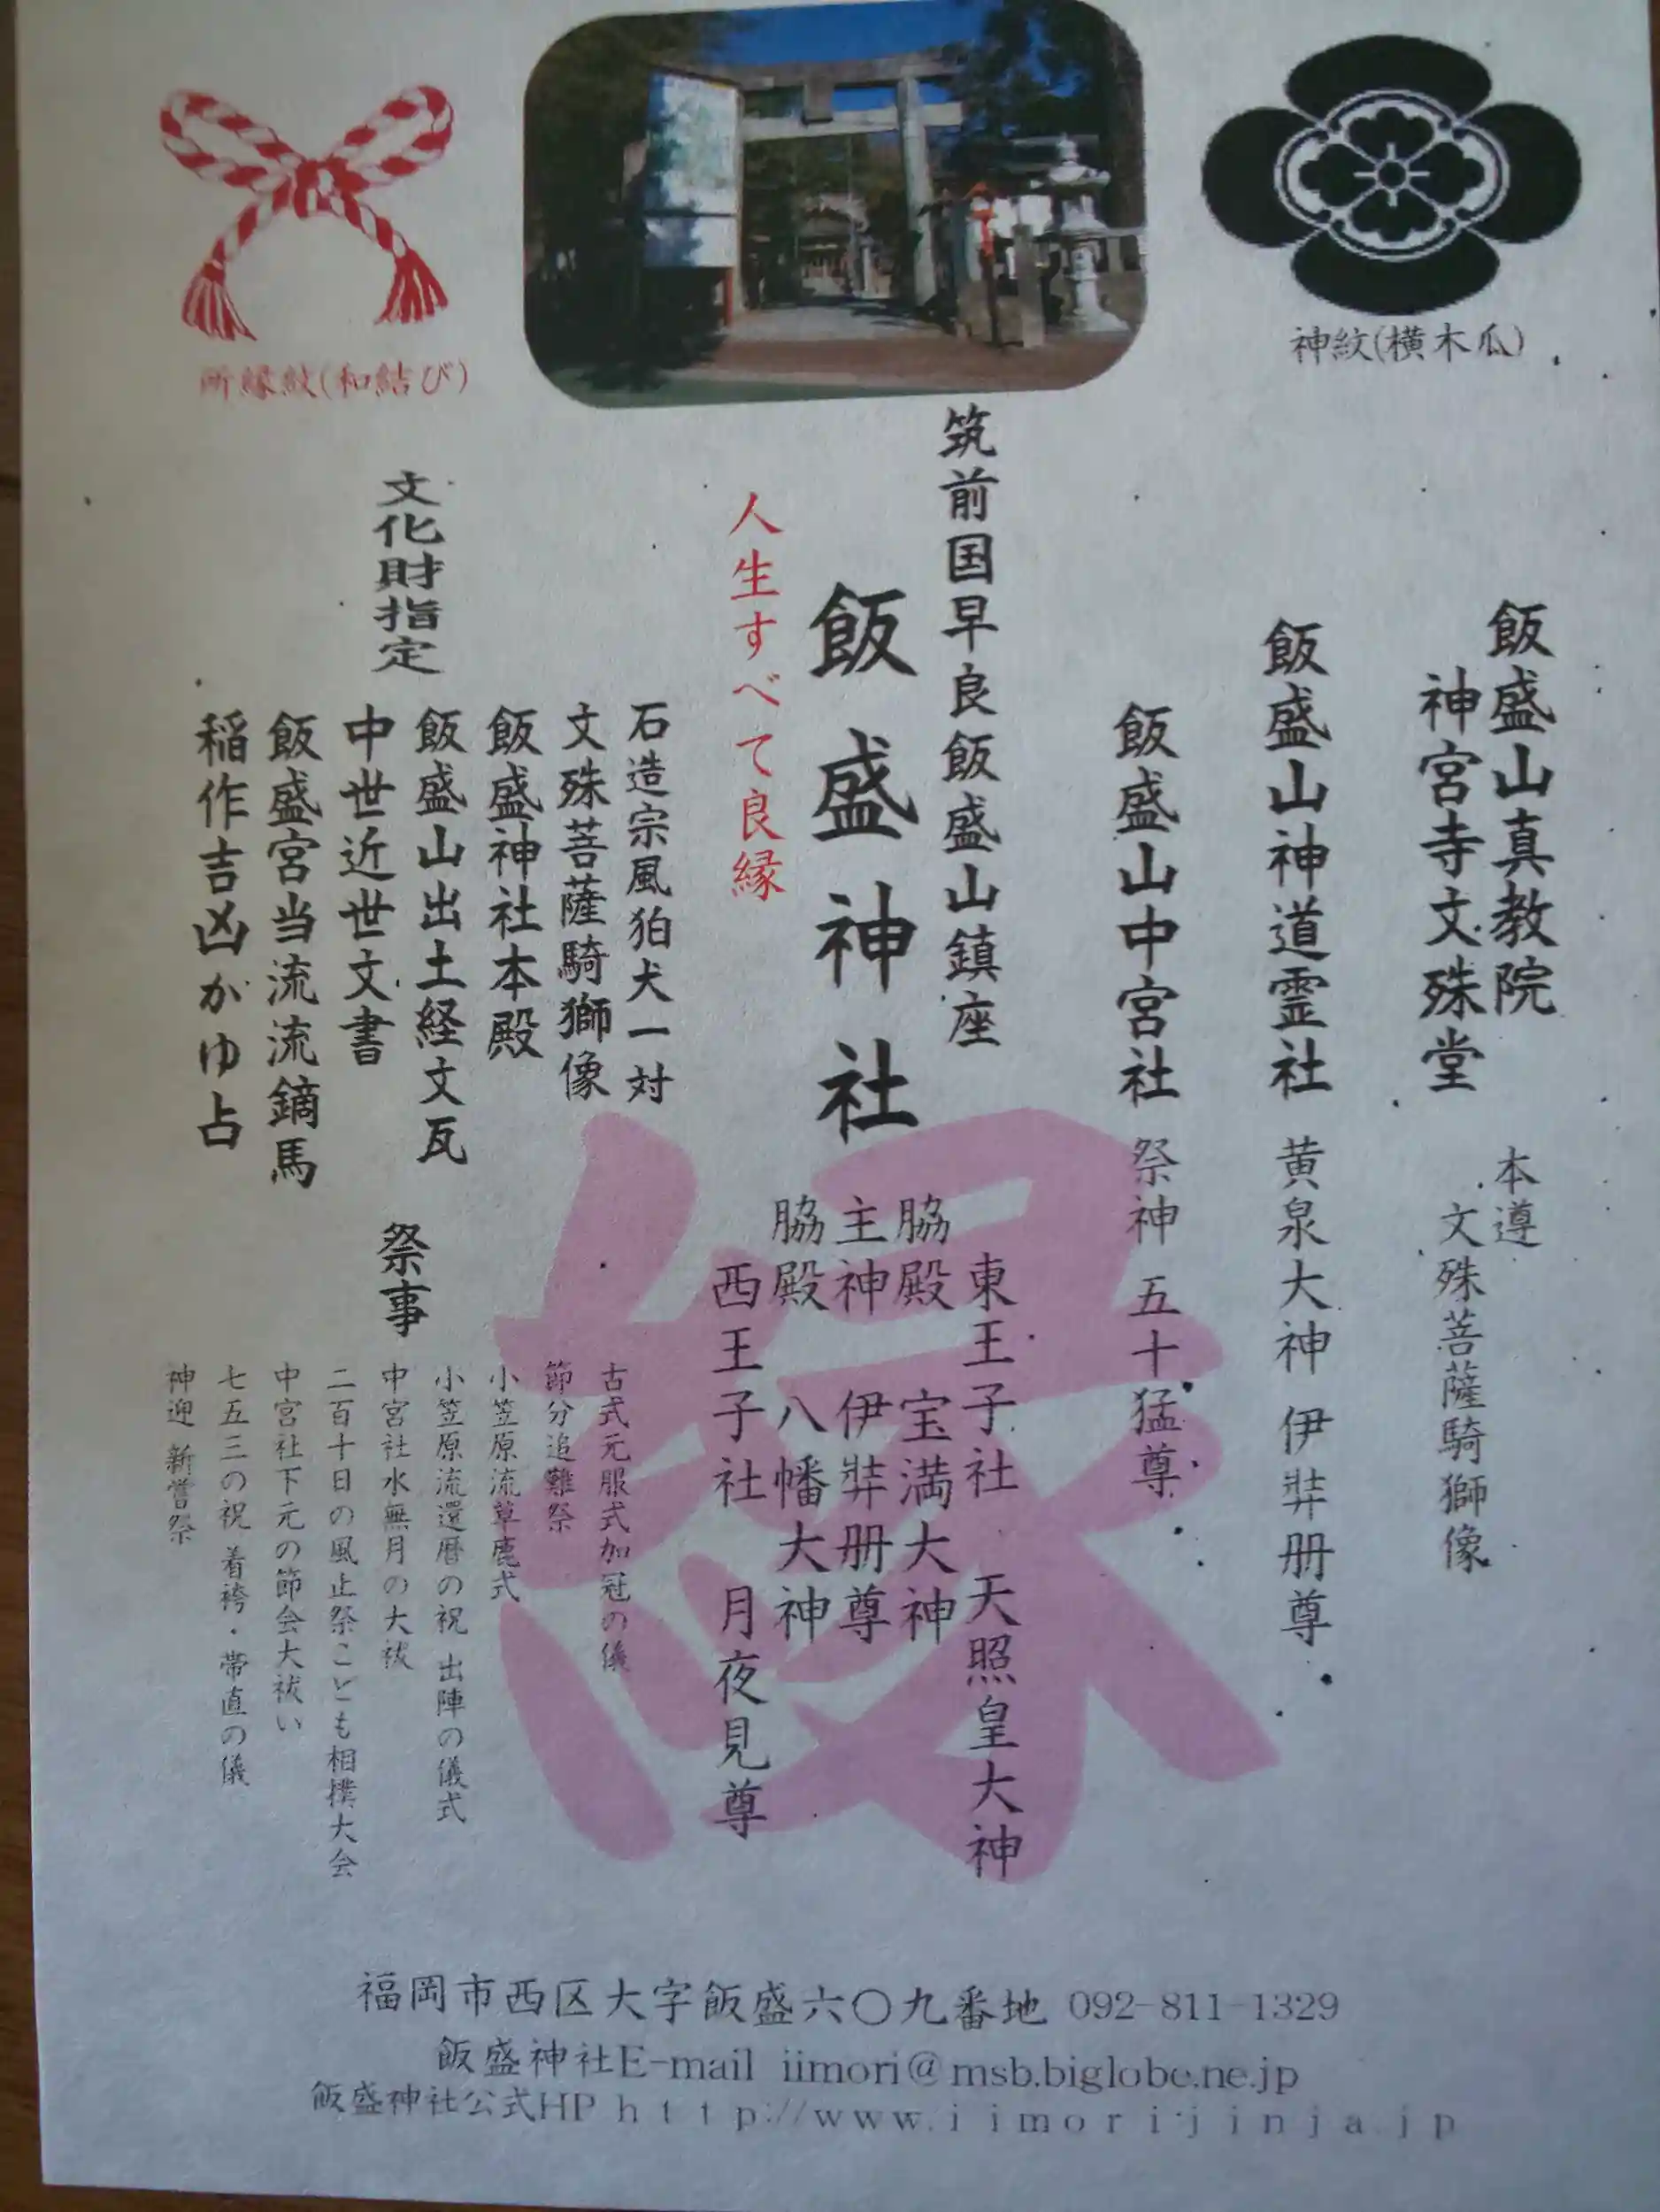 神紋(横木瓜)
所縁紋(和結び)
飯盛山真教院
神宮寺文殊堂
本遵
文殊菩薩騎獅像
飯盛山神道霊社 黄泉大神 伊弉册尊
飯盛山中宮社 祭神 五十猛尊
筑前国早良飯盛山鎮座
飯盛神社
東王子社 天照皇大神
脇殿 宝満大神
主神 伊弉册尊
脇殿 八幡大神
西王子社 月夜見尊
人生すべて良縁
縁
文化財指定
石造宗風狛犬一対
文殊菩薩騎獅像
飯盛神社本殿
飯盛山出土経文瓦
中世近世文書
飯盛宮当流流鏑馬
稲作吉凶かゆ占
祭事
古式元服式加冠の儀
節分追難祭
小笠原流草鹿式
小笠原流還暦の祝 出陣の儀式
中宮社水無月の大祓
二百十日の風止祭こども相撲大会
中宮社下元の節会大祓い
七五三の祝 着袴・帯直の儀
神迎 新嘗祭
福岡市西区大字飯盛六〇九番地 092-811-1329
飯盛神社E-mail iimori@msb.biglobe.ne.jp
飯盛神社公式HP http://www.iimorijinja.jp